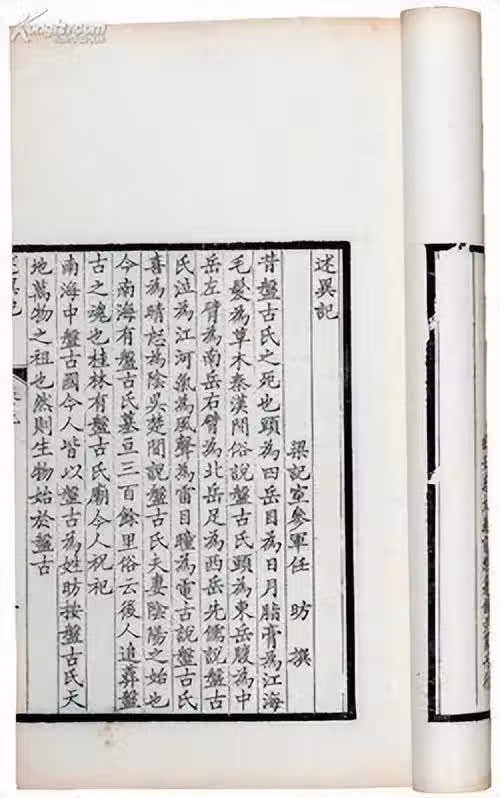 述異記
梁記室參軍任昉撰
昔盤古氏之死也頭為四岳目為日月脂膏為江海
毛髮為草木秦漢間俗說盤古氏頭為東岳腹為中
岳左臂為南岳右臂為北岳足為西岳先儒說盤古
氏泣為江河氣為風聲為雷目瞳為電古說盤古氏
喜為晴怒為陰吳楚間說盤古氏夫妻陰陽之始也
今南海有盤古氏墓亘三百餘里俗云後人追葬盤
古之魂也桂林有盤古氏廟今人祝祀
南海中盤古國今人皆以盤古為姓昉按盤古氏天
地萬物之祖也然則生物始於盤古